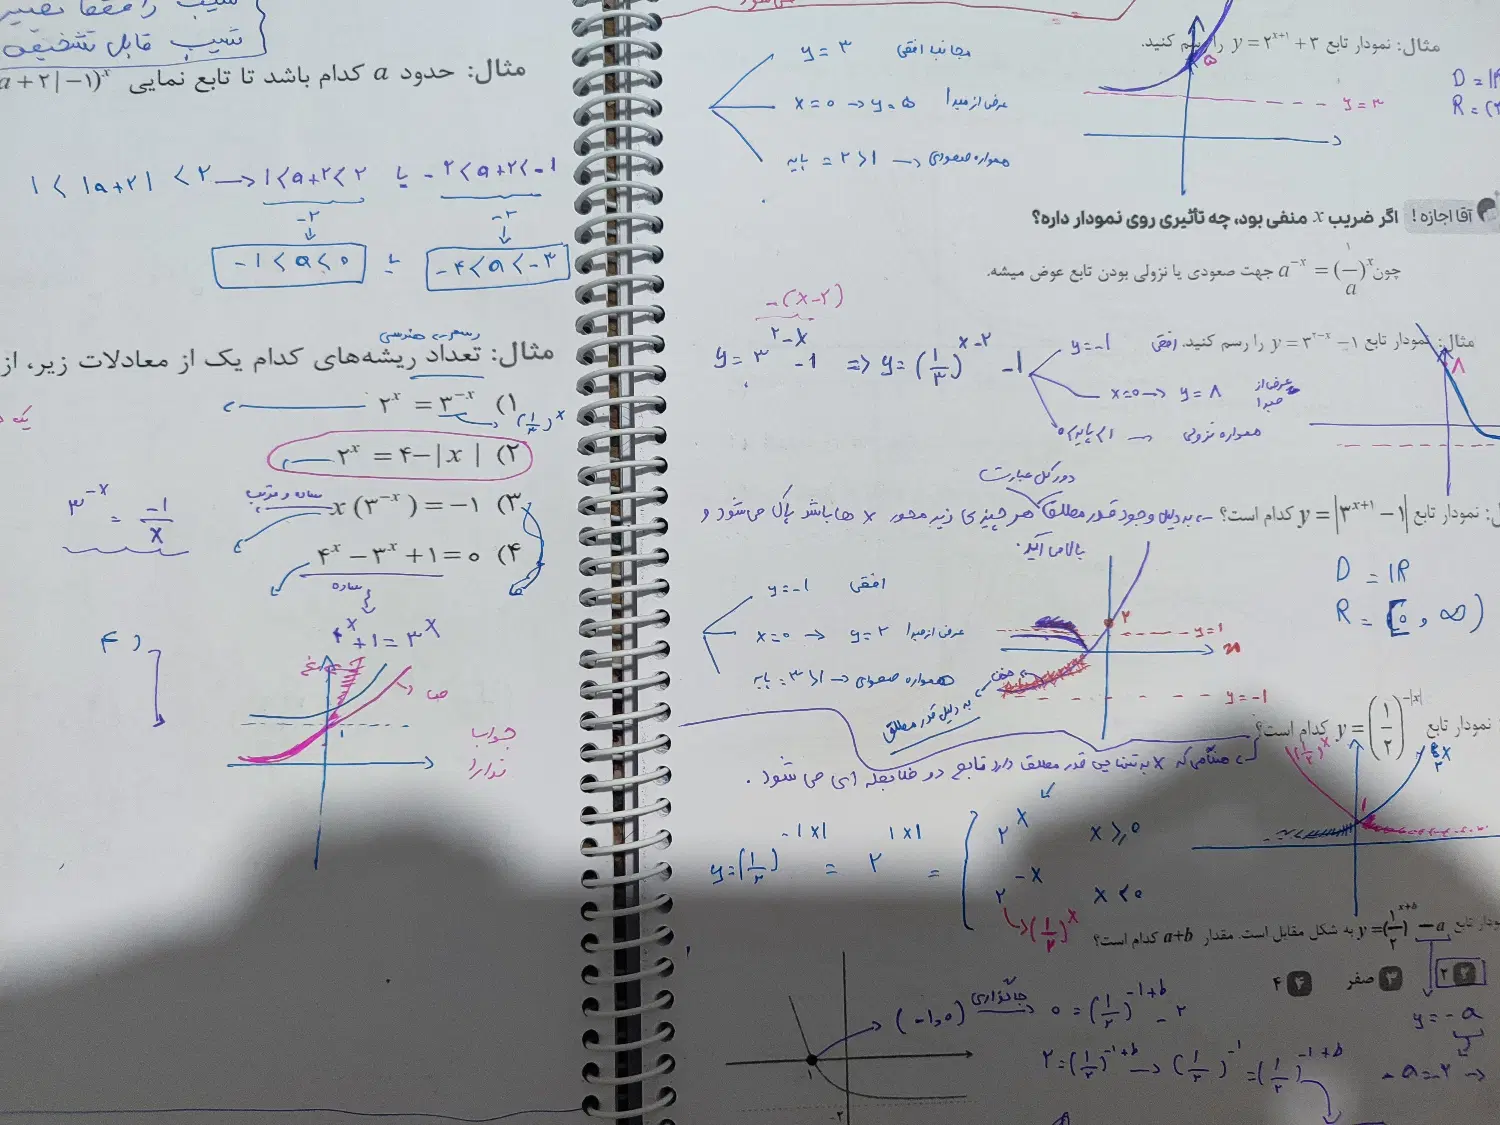 شیب قابل تشخیصه
مثال: حدود a کدام باشد تا تابع نمایی (a+۲|−۱)^x
۱ < |a+۲| < ۲ → ۱<a+۲<۲ یا −۲<a+۲<−۱
−۲ −۲
−۱<a<۰ یا −۴<a<−۳
رسم → هندسی
مثال: تعداد ریشه‌های کدام یک از معادلات زیر، از
۱) ۲^x = ۳^−x
(۱/۳)^x
۲) ۲^x = ۴−|x|
۳) x(۳^−x) = −۱
ساده و مرتب
۳^−x = −۱/x
۴) ۴^x − ۳^x + ۱ = ۰
ساده
۴^x + ۱ = ۳^x
۴)
۱
جواب
ندارد
مثال: نمودار تابع y = ۲^x+۱ + ۳ را رسم کنید.
مجانب افقی y = ۳
عرض از مبدأ x = ۰ → y = ۵
همواره صعودی ← ۲>۱ = پایه
۵
y = ۳
D = IR
آقا اجازه! اگر ضریب x منفی بود، چه تأثیری روی نمودار داره؟
چون a^−x = (۱/a)^x جهت صعودی یا نزولی بودن تابع عوض میشه.
−(x−۲)
مثال: نمودار تابع y = ۳^۲−x − ۱ را رسم کنید.
y = ۳^۲−x − ۱ ⇒ y = (۱/۳)^x−۲ − ۱
y = −۱ افقی
x=۰ → y = ۸ عرض از مبدأ
همواره نزولی ← ۱>پایه>۰
۸
دور کل عبارت
نمودار تابع y = |۳^x+۱ − ۱| کدام است؟ → به دلیل وجود قدر مطلق هر چیزی زیر محور x ها باشد پاک می‌شود و
بالا می‌آید.
y = −۱ افقی
x=۰ → y = ۲ عرض از مبدأ
همواره صعودی ← ۳>۱ : پایه
۲
y = ۱
y = −۱
حذف
به دلیل قدر مطلق
D = IR
R = [۰ , ∞)
نمودار تابع y = (۱/۲)^−|x| کدام است؟
هنگامی که x به تنهایی قدر مطلق دارد تابع دو ضابطه ای می شود.
(۱/۲)^x
۲^x
۱
y = (۱/۲)^−|x| = ۲^|x| = { ۲^x x ≥ ۰
۲^−x x < ۰
→ (۱/۲)^x
نمودار تابع y = (۱/۲)^x+b − a به شکل مقابل است. مقدار a+b کدام است؟
۲ ۲
۳ صفر
۴ ۴
y = −a
(−۱,۰) جاگذاری → ۰ = (۱/۲)^−۱+b − ۲
۲ = (۱/۲)^−۱+b → (۱/۲)^−۱ = (۱/۲)^−۱+b
−a = −۲ →
۱
−۲